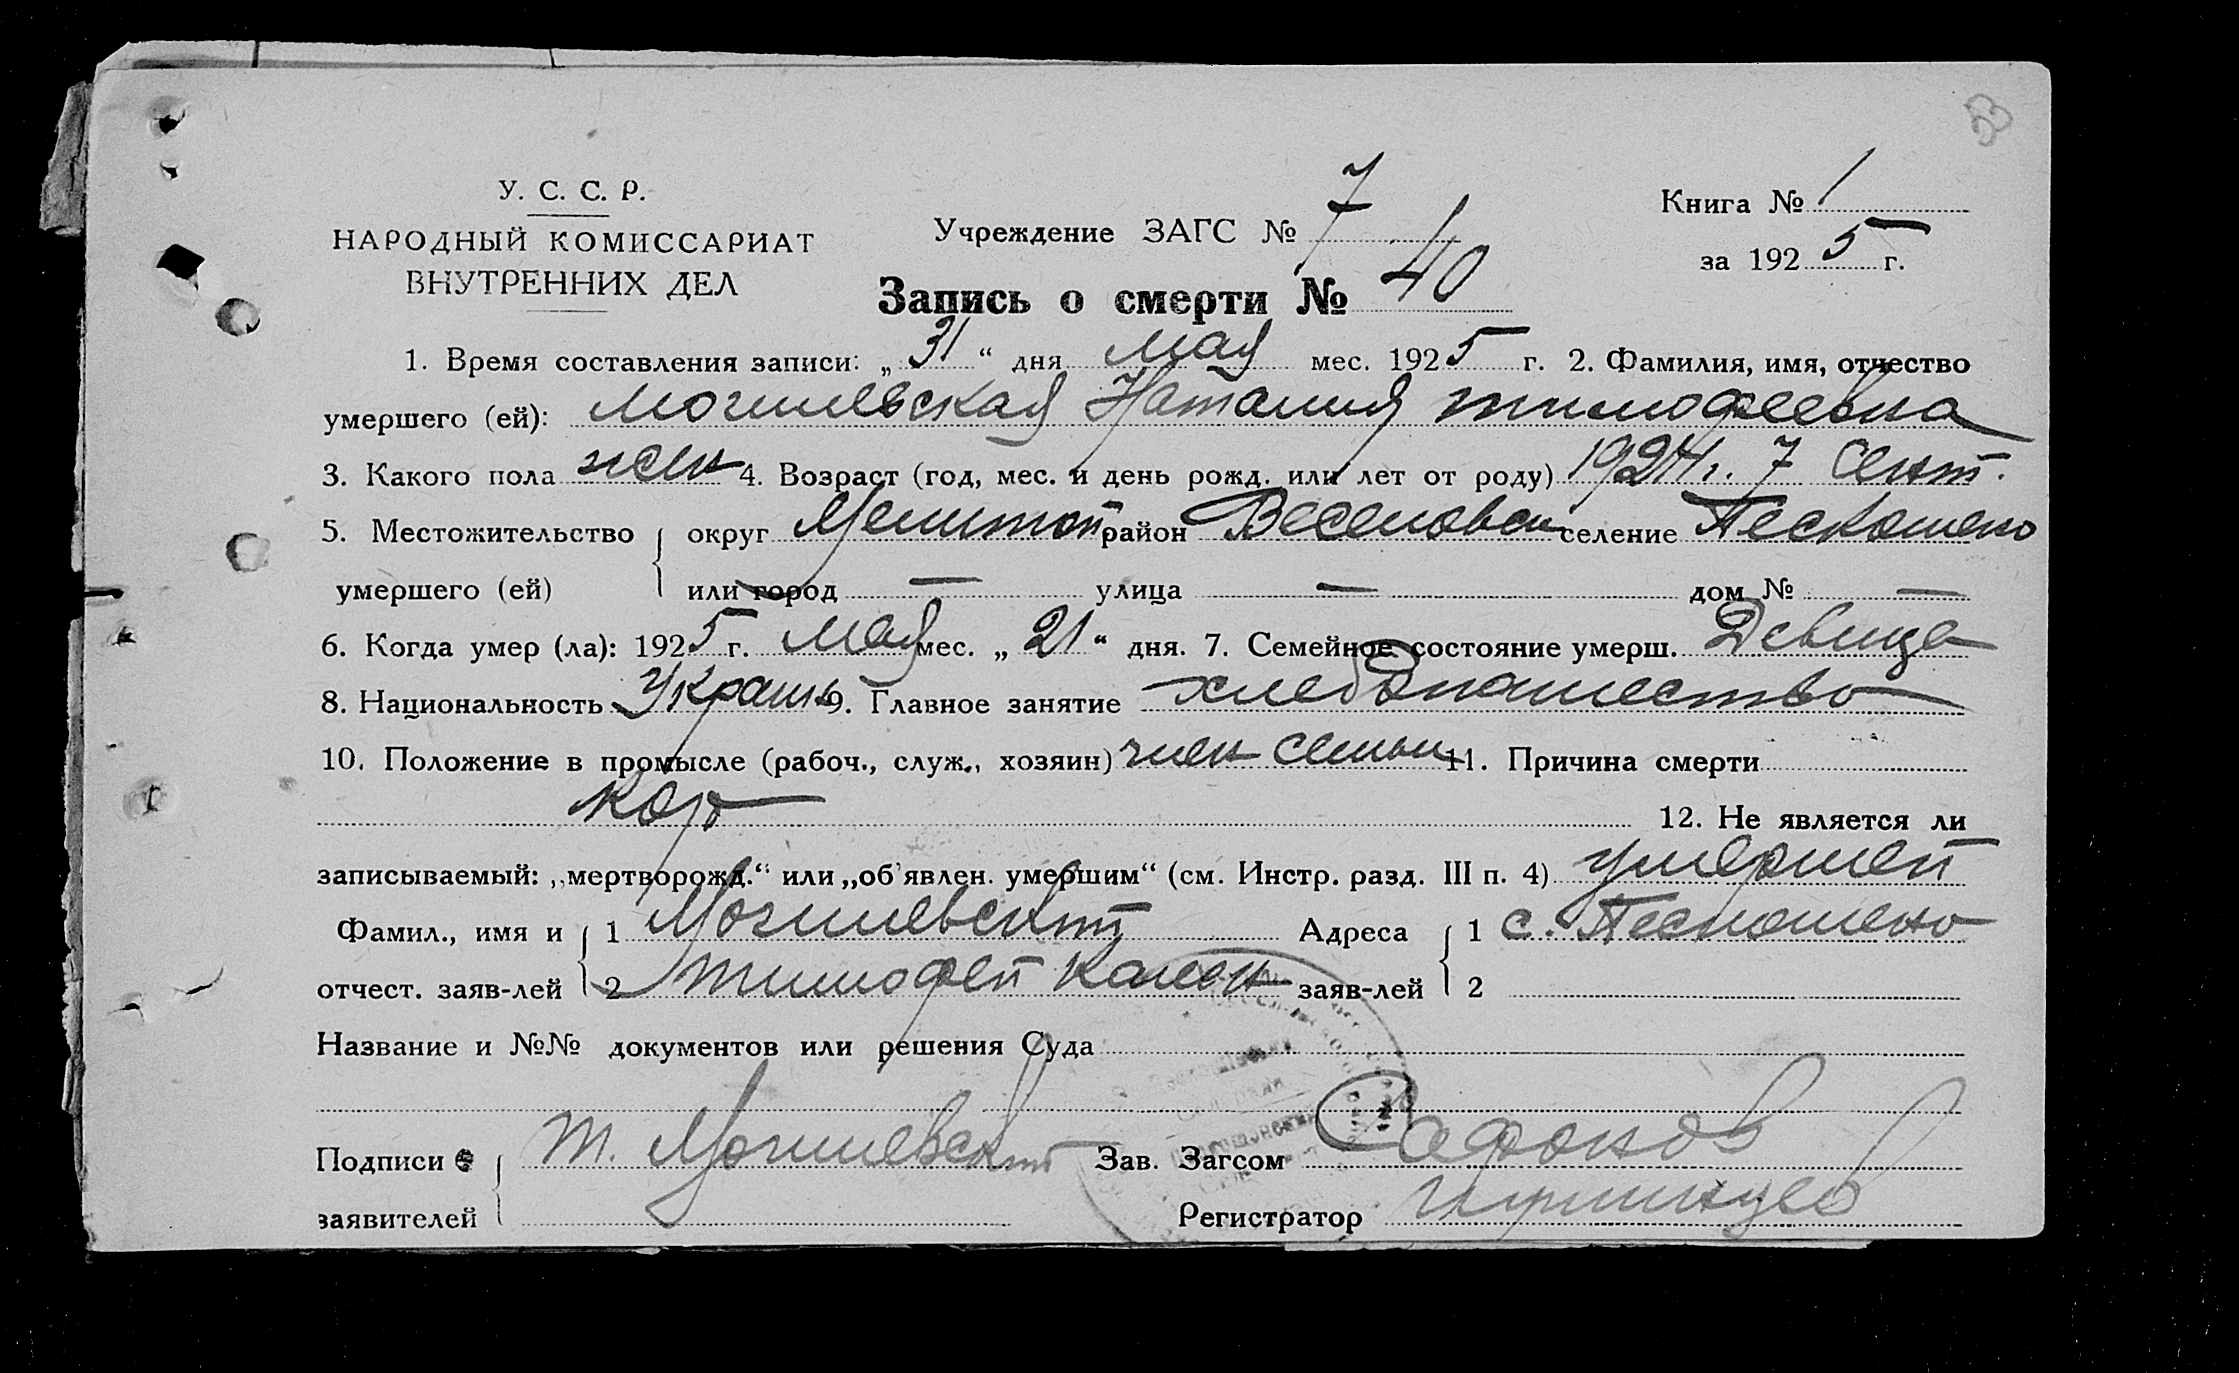 53
У. С. С. Р.
НАРОДНЫЙ КОМИССАРИАТ
ВНУТРЕННИХ ДЕЛ
Учреждение ЗАГС № 7
Книга № 1
за 1925 г.
Запись о смерти № 40
1. Время составления записи: „31“ дня мая мес. 1925 г. 2. Фамилия, имя, отчество
умершего (ей): Могилевская Наталия Тимофеевна
3. Какого пола жен 4. Возраст (год, мес. и день рожд. или лет от роду) 1924 г. 7 сент.
5. Местожительство округ Мелитоп район Веселовск селение Пескошено
умершего (ей) или город — улица — дом № —
6. Когда умер (ла): 1925 г. мая мес. „21“ дня. 7. Семейное состояние умерш. Девица
8. Национальность Украин 9. Главное занятие хлебопашество
10. Положение в промысле (рабоч., служ., хозяин) член семьи 11. Причина смерти
Кор
12. Не является ли
записываемый: „мертворожд.“ или „об'явлен. умершим“ (см. Инстр. разд. III п. 4) умершей
Фамил., имя и 1 Могилевский Адреса 1 с. Пескошено
отчест. заяв-лей 2 Тимофей заяв-лей 2
Название и №№ документов или решения Суда
Подписи Т. Могилевский Зав. Загсом Сафонов
заявителей Регистратор